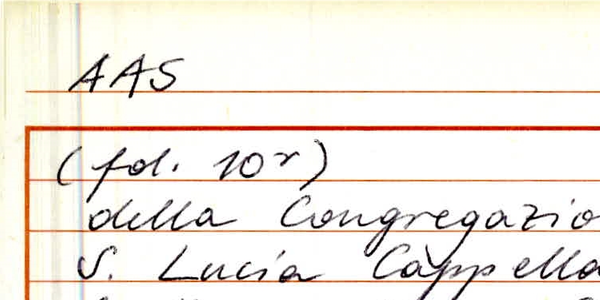 AAS
(fol. 10r)
della Congregazio
S. Lucia Cappella